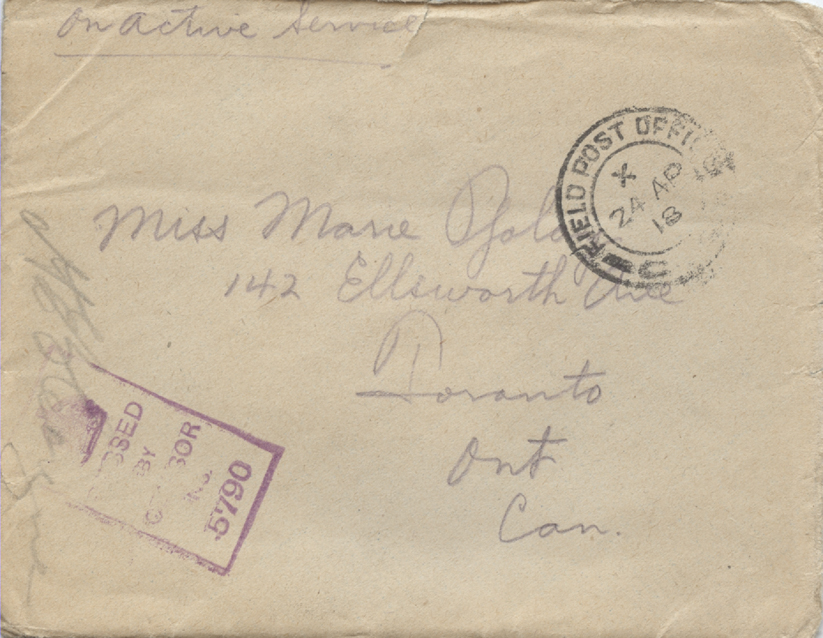 On Active Service
FIELD POST OFFI
X
24 AP
18
Miss Marie
142 Ellsworth Ave
Toronto
Ont
Can.
SSED
BY
No.
5790